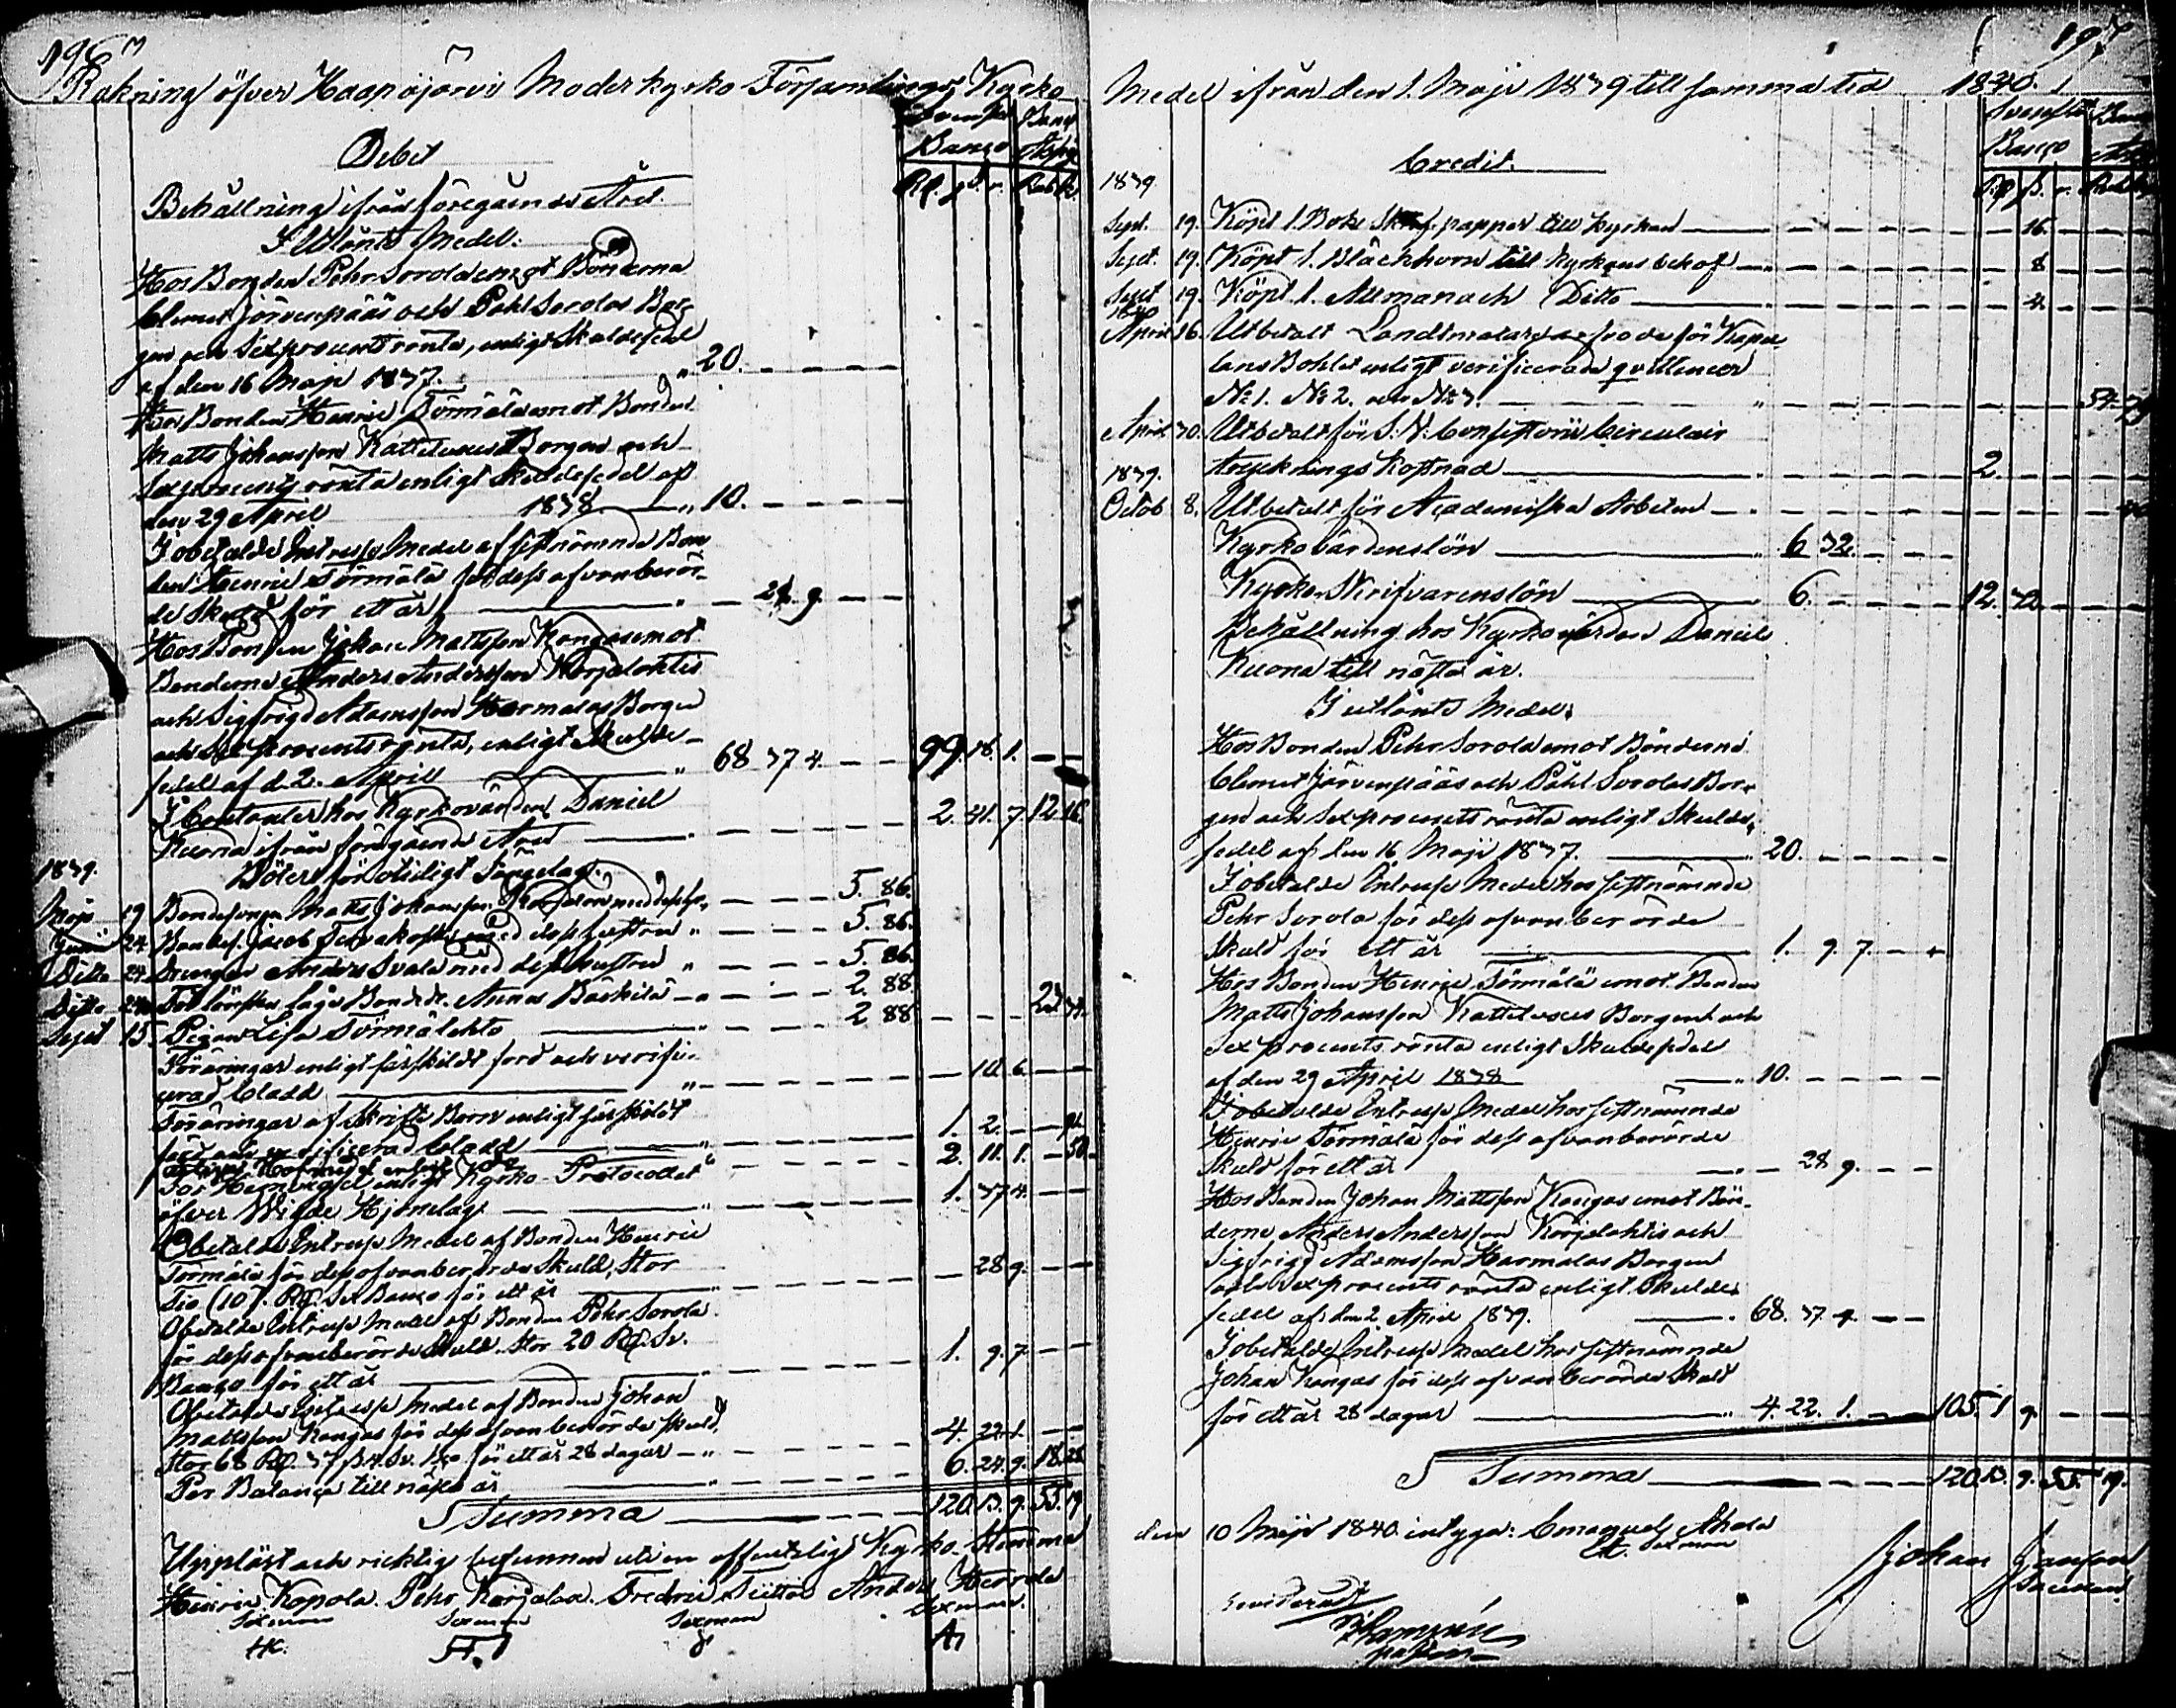 196
Räkning öfver Haapajärvi Moderkyrko Församlings Kyrko
Svenska Banco
Banco
Rd. ß. r. Rub. K.
Debet
Behållning ifrån föregående Året.
I Utlånte Medel:
Hos Bonden Pehr Sorola emot Bönderna
Clemet Järvenpääs och Påhl Sorolas Bor-
gen och Sexprocents ränta, enligt Skuldsedel
af den 16 Maji 1837. 20.
Hos Bonden Henric Törmälä emot Bonden
Matts Johansson Kattilas Borgen och
Sexprocents ränta enligt Skuldsedel af
den 29 April 1838 10.
I obetalde Intresse Medel af sistnämnde Bon
den Henric Törmälä för dess ofvanberör-
de Skuld för ett år 28. 9.
Hos Bonden Johan Mattsson Kangas emot
Bönderne Anders Andersson Karjalahtis
och Sigfrigd Adamsson Harmalas Borgen
och Sex procents ränta, enligt Skuld-
sedel af d. 2. April 68 37 4. 99. 18. 1.
I Contanter hos Kyrkovärden Daniel
Kuona ifrån föregående Året 2. 41. 7. 12 16.
1839. Böter för otidigt Sängelag.
Maji 19 Bondesonen Matts Johansson 5. 86.
Junii 24 Bondes. Jacob med dess hustru 5. 86.
Ditto 24 Drengen Anders Svala med dess hustru 5. 86.
Ditto 24 Anna 2. 88.
Sept 15. Pigan Lisa Törmälehto 2 88
Föräringar enligt särskildt förd och verifi-
cerad Cladd 10. 6.
Föräringar af Skrift Barn enligt särskildt
förd och verificerad Cladd 1. 2.
2. 11. 1. 50.
enligt Kyrko-Protocollet
öfver Wigde Hjonelag 1. 37 4.
Obetalde Intresse Medel af Bonden Henric
Törmälä för dess ofvanberörde Skuld, Stor
Tio (10). Rd. Sv. Banco för ett år 28 9.
Obetalde Intresse Medel af Bonden Pehr Sorola
för dess ofvanberörde Skuld. Stor 20 Rd. Sv.
Banco för ett år 1. 9. 7
Obetalde Intresse Medel af Bonden Johan
Mattsson Kangas för dess ofvanberörde skuld,
Stor 68 Rd. 37 ß 4. Sv. Bco för ett år 28 dagar 4. 22. 1.
Per Balance till nästa år 6. 24. 9. 18. 28
Summa 120. 13. 9. 55. 19
Uppläst och ricktig befunnen uti en offentelig Kyrko-Stemma
Henric Kopola. Pehr Karjalax. Fredric Tiitto Anders
Sexman Sexman Sexman Sexman.
HK.
197
Medel ifrån den 1. Maji 1839 till samma tid 1840.
Svenska Banco
Rd ß. r.
Credit.
1839
Sept. 19. Köpt 1. Bok Skrif papper till kyrkan 16.
Sept. 19. Köpt 1. Bläckhorn till kyrkans behof 8.
Sept 19. Köpt 1. Allmanach Ditto 4.
1840
April 16. Utbetalt Landtmätare för Kapel-
lans Bohlet enligt verificerade qvittencer
No 1. No 2. och No 3. 54.
April 30. Utbetalt för Consistorii Circulair
tryckningskostnad 2.
1839.
Octob 8. Utbetalt för Academiska Arbeten
Kyrkovärdenslön 6 32
Kyrko-Skrifvarenslön 6. 12. 32
Behållning hos Kyrkovärden Daniel
Kuona till nästa år.
I utlånte Medel:
Hos Bonden Pehr Sorola emot Bönderne
Clemet Järvenpääs och Påhl Sorolas Bor-
gen och Sexprocents ränta enligt Skuld-
sedel af den 16 Maji 1837. 20.
I obetalde Intresse Medel hos sistnämnde
Pehr Sorola för dess ofvanberörde
Skuld för ett år 1. 9. 7.
Hos Bonden Henric Törmälä emot Bonden
Matts Johansson Kattilas Borgen och
Sex procents ränta enligt Skuldsedel
af den 29 April 1838 10.
I obetalde Intresse Medel hos sistnämnde
Henric Törmälä för dess ofvanberörde
Skuld för ett år 28 9.
Hos Bonden Johan Mattsson Kangas emot Bön-
derne Anders Andersson Karjalahtis och
Sigfrigd Adamsson Harmalas Borgen
och Sex procents ränta enligt Skuld-
sedel af den 2 April 1839. 68. 37 4.
I obetalde Intresse Medel hos sistnämnde
Johan Kangas för dess ofvanberörde Skuld
för ett år 28 dagar 4. 22. 1. 105. 1 9.
Summa 120. 13. 9. 55. 19.
den 10 Maji 1840. intyga: Emanuel Ahola
Sexman
Johan Janson